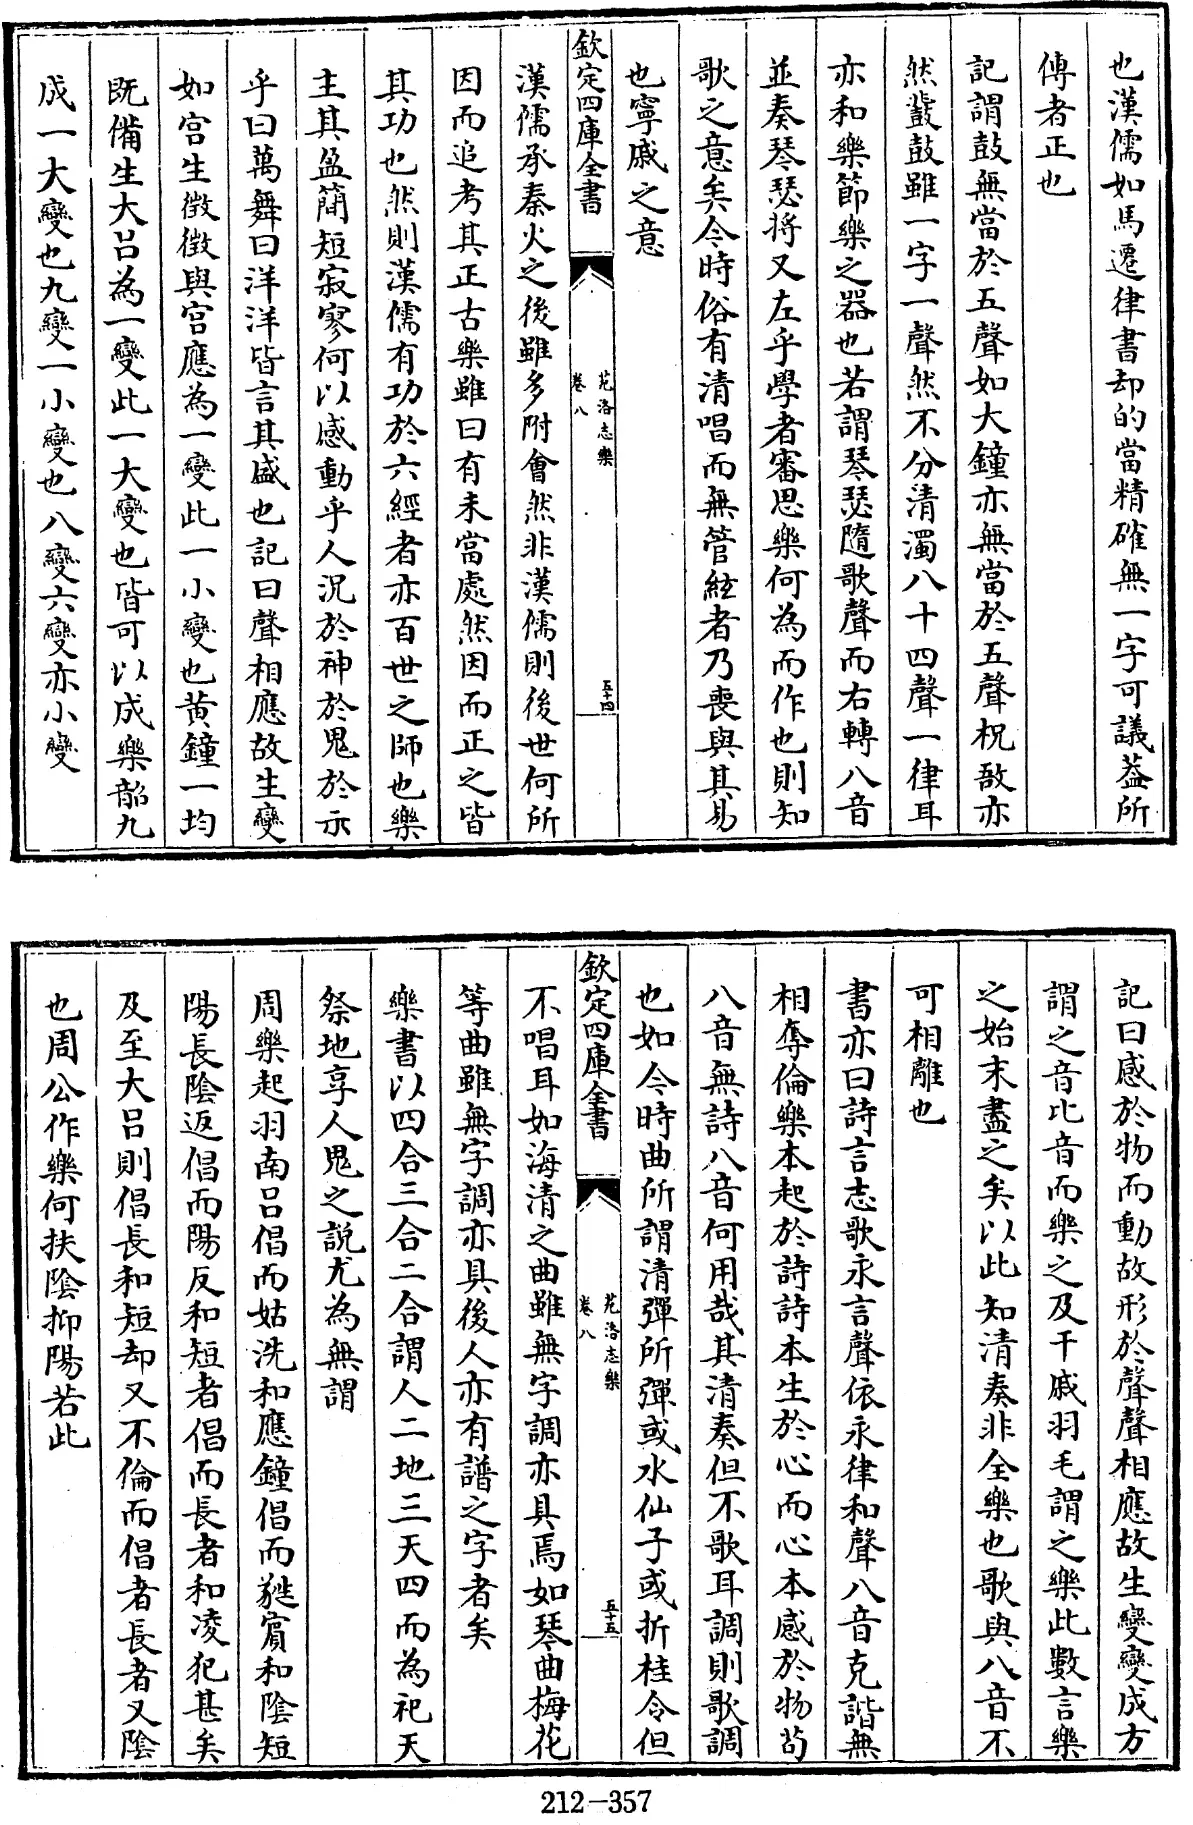 也漢儒如馬遷律書却的當精確無一字可議葢所
傳者正也
記謂鼓無當於五聲如大鐘亦無當於五聲柷敔亦
然鼗鼓雖一字一聲然不分清濁八十四聲一律耳
亦和樂節樂之器也若謂琴瑟隨歌聲而右轉八音
並奏琴瑟將又左乎學者審思樂何為而作也則知
歌之意矣今時俗有清唱而無管絃者乃喪與其易
也寧戚之意
欽定四庫全書
苑洛志樂
卷八
五十四
漢儒承秦火之後雖多附會然非漢儒則後世何所
因而追考其正古樂雖曰有未當處然因而正之皆
其功也然則漢儒有功於六經者亦百世之師也樂
主其盈簡短寂寥何以感動乎人況於神於鬼於示
乎曰萬舞曰洋洋皆言其盛也記曰聲相應故生變
如宮生徵徵與宮應為一變此一小變也黃鐘一均
既備生大呂為一變此一大變也皆可以成樂韶九
成一大變也九變一小變也八變六變亦小變
記曰感於物而動故形於聲聲相應故生變變成方
謂之音比音而樂之及干戚羽毛謂之樂此數言樂
之始末盡之矣以此知清奏非全樂也歌與八音不
可相離也
書亦曰詩言志歌永言聲依永律和聲八音克諧無
相奪倫樂本起於詩詩本生於心而心本感於物苟
八音無詩八音何用哉其清奏但不歌耳調則歌調
也如今時曲所謂清彈所彈或水仙子或折桂令但
欽定四庫全書
苑洛志樂
卷八
五十五
不唱耳如海清之曲雖無字調亦具焉如琴曲梅花
等曲雖無字調亦具後人亦有譜之字者矣
樂書以四合三合二合謂人二地三天四而為祀天
祭地享人鬼之說尤為無謂
周樂起羽南呂倡而姑洗和應鐘倡而蕤賓和陰短
陽長陰返倡而陽反和短者倡而長者和凌犯甚矣
及至大呂則倡長和短却又不倫而倡者長者又陰
也周公作樂何扶陰抑陽若此
212-357